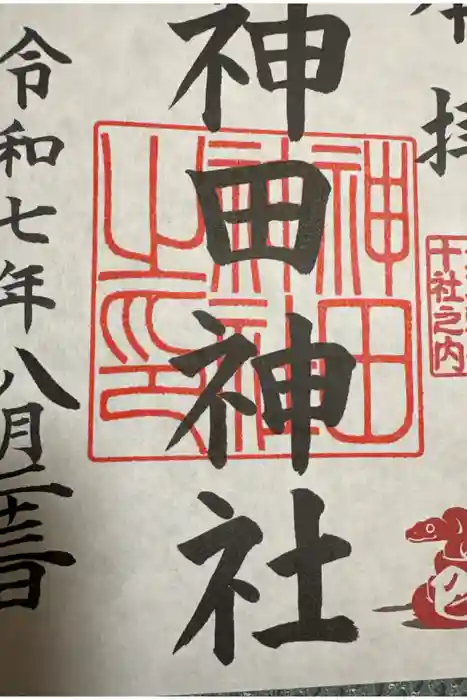 奉拝
十社之内
神田神社
神田
神社
之印
令和七年八月二十三日